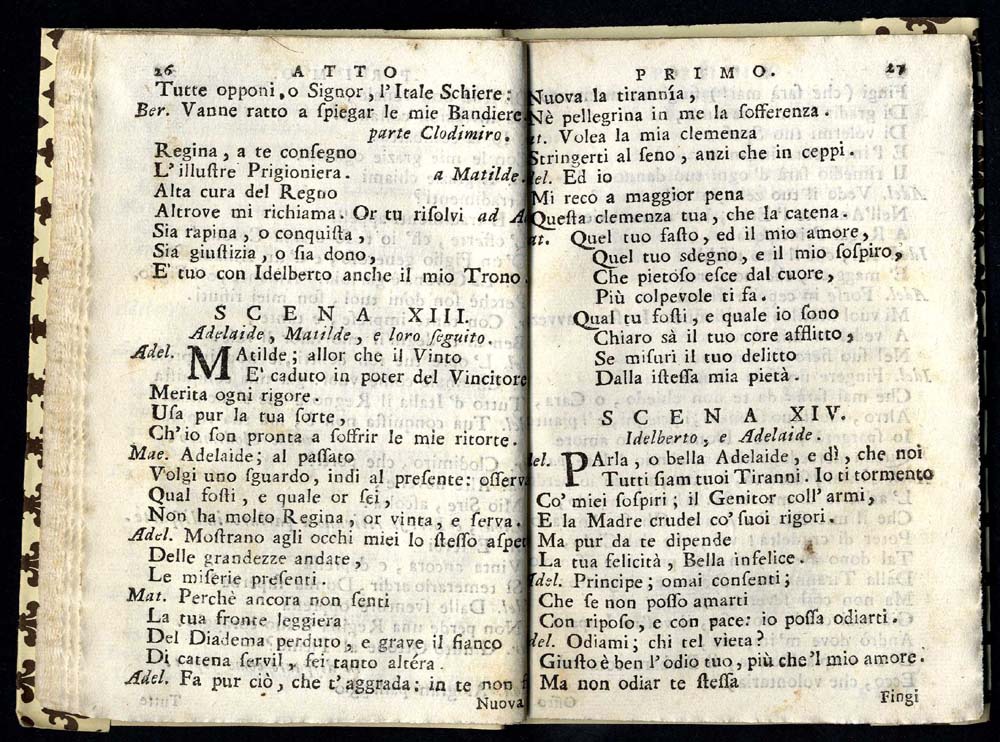 26 ATTO
Tutte opponi, o Signor, l'Itale Schiere:
Ber. Vanne ratto a ſpiegar le mie Bandiere.
parte Clodimiro.
Regina, a te conſegno
L'illuſtre Prigioniera. a Matilde.
Alta cura del Regno
Altrove mi richiama. Or tu riſolvi ad A
Sia rapina, o conquiſta,
Sia giuſtizia, o ſia dono,
E' tuo con Idelberto anche il mio Trono.
SCENA XIII.
Adelaide, Matilde, e loro ſeguito.
Adel. MAtilde; allor che il Vinto
E' caduto in poter del Vincitore
Merita ogni rigore.
Uſa pur la tua ſorte,
Ch'io ſon pronta a ſoffrir le mie ritorte.
Mae. Adelaide; al paſſato
Volgi uno ſguardo, indi al preſente: oſſerv
Qual foſti, e quale or ſei,
Non ha molto Regina, or vinta, e ſerva.
Adel. Moſtrano agli occhi miei lo ſteſſo aſpet
Delle grandezze andate,
Le miſerie preſenti.
Mat. Perchè ancora non ſenti
La tua fronte leggiera
Del Diadema perduto, e grave il fianco
Di catena ſervil, ſei tanto altéra.
Adel. Fa pur ciò, che t'aggrada: in te non f
Nuova
PRIMO. 27
Nuova la tirannía,
Nè pellegrina in me la ſofferenza.
at. Volea la mia clemenza
Stringerti al ſeno, anzi che in ceppi.
del. Ed io
Mi reco a maggior pena
Queſta clemenza tua, che la catena.
at. Quel tuo faſto, ed il mio amore,
Quel tuo sdegno, e il mio ſoſpiro,
Che pietoſo eſce dal cuore,
Più colpevole ti fa.
Qual tu foſti, e quale io ſono
Chiaro sà il tuo core afflitto,
Se miſuri il tuo delitto
Dalla iſteſſa mia pietà.
SCENA XIV.
Idelberto, e Adelaide.
del. PArla, o bella Adelaide, e dì, che noi
Tutti ſiam tuoi Tiranni. Io ti tormento
Co' miei ſoſpiri; il Genitor coll' armi,
E la Madre crudel co' ſuoi rigori.
Ma pur da te dipende
La tua felicità, Bella infelice.
Adel. Principe; omai conſenti;
Che ſe non poſſo amarti
Con ripoſo, e con pace: io poſſa odiarti.
del. Odiami; chi tel vieta?
Giuſto è ben l'odio tuo, più che 'l mio amore.
Ma non odiar te ſteſſa
Fingi